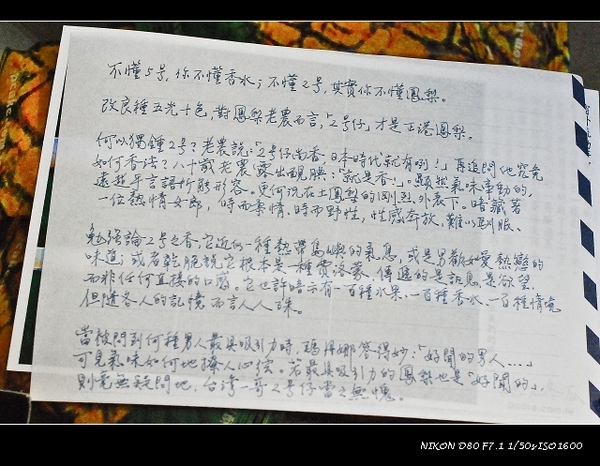 不懂5号，你不懂香水；不懂2号，其實你不懂鳳梨。
改良種五光十色，對鳳梨老農而言，「2号仔」才是正港鳳梨。
何以獨鍾2号？老農說：「2号仔尚香，日本時代就有咧！」再追問他究竟
如何香法？八十歲老農露出靦腆：「就是香！」。顯然氣味牽動的，
遠超乎言語所能形容。更何況在土鳳梨的剛烈外表下，暗藏著
一位熱情女郎，時而柔情，時而野性，性感奔放，難以馴服。
勉強論2号之香，它近似一種熱帶島嶼的氣息，或是男歡女愛熱戀的
味道，或者乾脆說它根本是一種費洛蒙，傳遞的是訊息是欲望，
而非任何直接的口腐。它也許暗示有一百種水果、一百種香水、一百種情境
但隨各人的記憶而言人人殊。
當被問到何種男人最具吸引力時，瑪丹娜答得妙：「好聞的男人……」
可見氣味如何地撩人心弦。若最具吸引力的鳳梨也是「好聞的」，
則毫無疑問地，台灣一哥2号仔當之無愧。
NIKON D80 F7.1 1/50s ISO1600